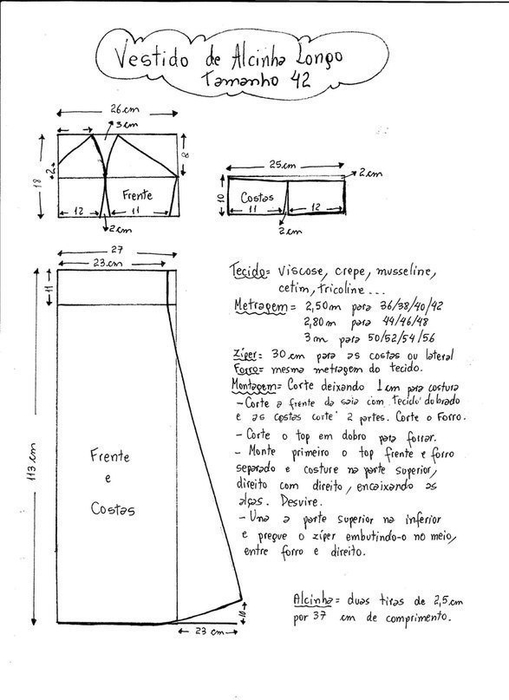 Vestido de Alcinha Longo
Tamanho 42
26 cm
3 cm
8
18
2
Frente
12
11
2 cm
25 cm
2 cm
10
Costas
11
12
2 cm
27
23 cm
11
113 cm
Frente
e
Costas
10
23 cm
Tecido= Viscose, crepe, musseline,
cetim, tricoline...
Metragem= 2,50m para 36/38/40/42
2,80m para 44/46/48
3m para 50/52/54/56
Zíper= 30 cm para as costas ou lateral
Forro= mesma metragem do tecido.
Montagem= Corte deixando 1cm para costura
- Corte a frente da saia com tecido dobrado
e as costas corte 2 partes. Corte o Forro.
- Corte o top em dobro para forrar.
- Monte primeiro o top frente e forro
separado e costure na parte superior,
direito com direito, encaixando as
alças. Desvire.
- Una a parte superior na inferior
e pregue o zíper embutindo-o no meio,
entre forro e direito.
Alcinha= duas tiras de 2,5cm
por 37 cm de comprimento.